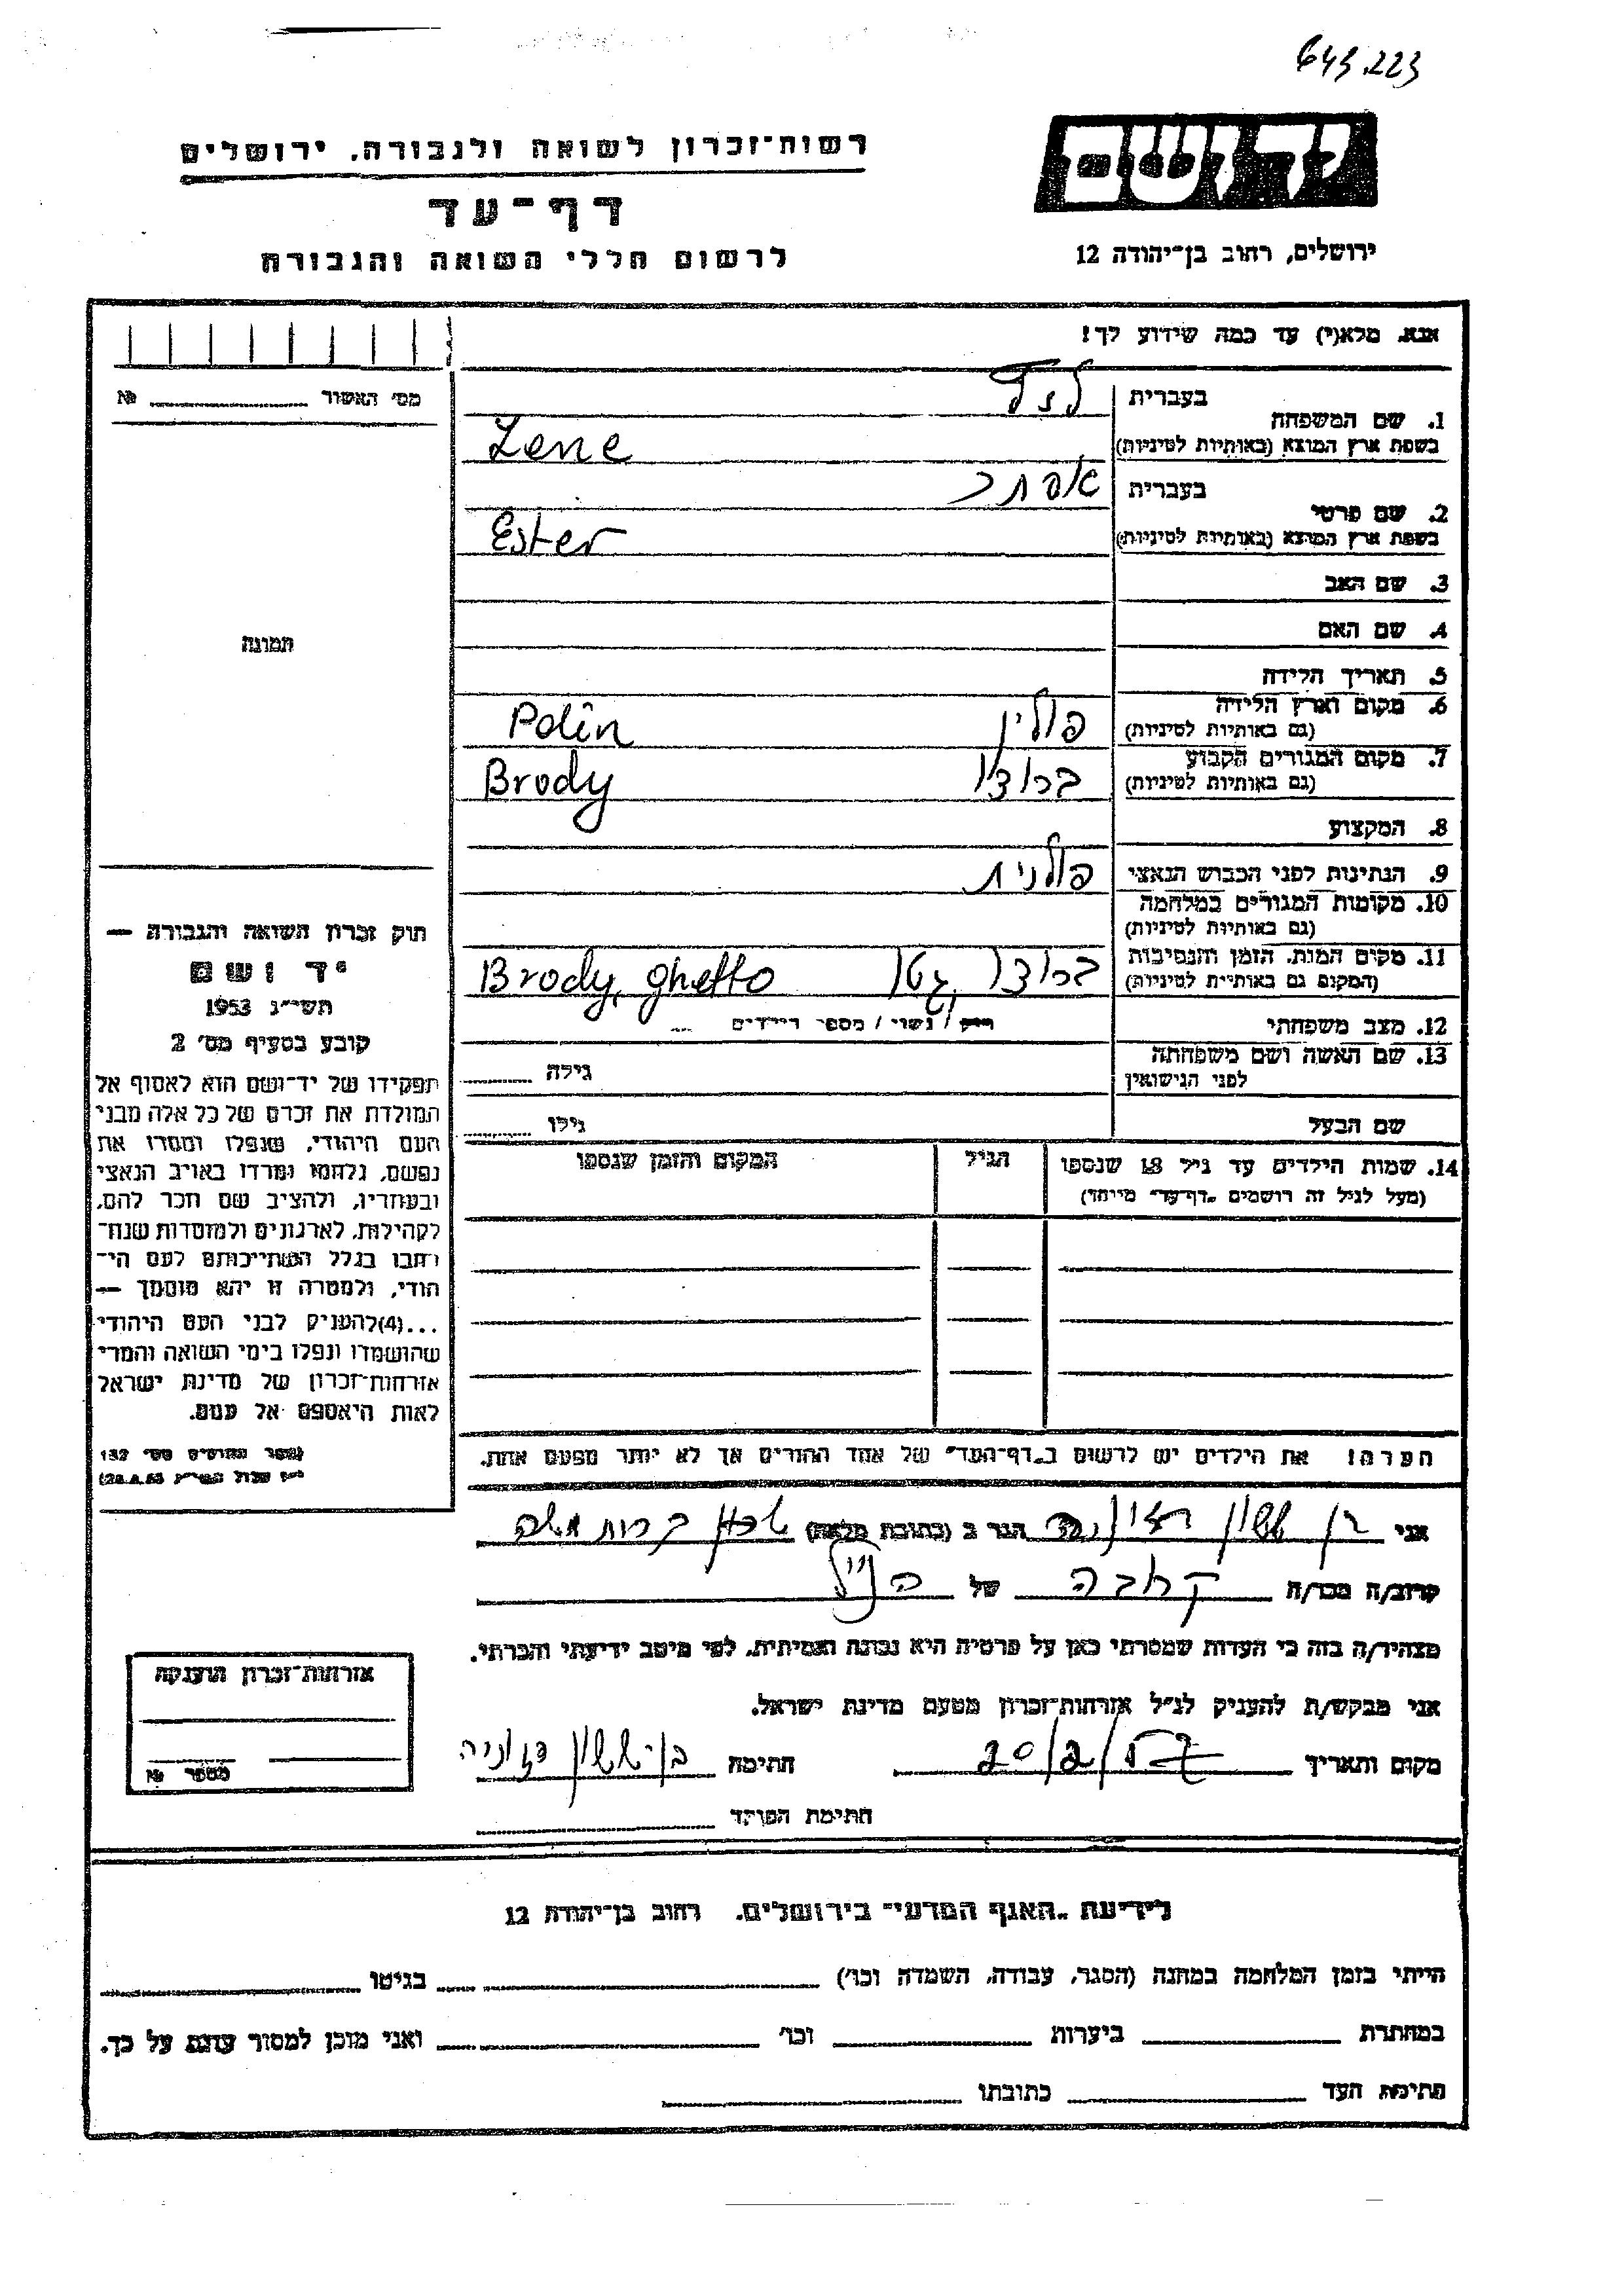 643.223
יד ושם
רשות־זכרון לשואה ולגבורה. ירושלים
דף־עד
לרשום חללי השואה והגבורה
ירושלים, רחוב בן־יהודה 12
אנא. מלא(י) עד כמה שידוע לך!
מס׳ האשור № 
1. שם המשפחה
בעברית
בשפת ארץ המוצא (באותיות לטיניות)
Lene
2. שם פרטי
בעברית אסתר
בשפת ארץ המוצא (באותיות לטיניות)
Ester
3. שם האב
4. שם האם
תמונה
5. תאריך הלידה
6. מקום וארץ הלידה
(גם באותיות לטיניות)
פולין Polin
7. מקום המגורים הקבוע
(גם באותיות לטיניות)
ברודי Brody
8. המקצוע
9. הנתינות לפני הכבוש הנאצי פולנית
10. מקומות המגורים במלחמה
(גם באותיות לטיניות)
11. מקום המות. הזמן והנסיבות
(המקום גם באותיות לטיניות)
ברודי, גטו Brody, ghetto
12. מצב משפחתי רוק / נשוי / מספר הילדים
13. שם האשה ושם משפחתה
לפני הנישואין
גילה
שם הבעל גילו
14. שמות הילדים עד גיל 18 שנספו
(מעל לגיל זה רושמים „דף־עד״ מיוחד)
הגיל
המקום והזמן שנספו
חוק זכרון השואה והגבורה —
יד ושם
תשי״ג 1953
קובע בסעיף מס׳ 2
תפקידו של יד־ושם הוא לאסוף אל
המולדת את זכרם של כל אלה מבני
העם היהודי, שנפלו ומסרו את
נפשם, נלחמו ומרדו באויב הנאצי
ובעוזריו, ולהציב שם וזכר להם,
לקהילות, לארגונים ולמוסדות שנח־
רחבו בגלל השתייכותם לעם הי־
הודי, ולמטרה זו יהא מוסמך —
...(4)להעניק לבני העם היהודי
שהושמדו ונפלו בימי השואה והמרי
אזרחות־זכרון של מדינת ישראל
לאות היאספם אל עמם.
(ספר החוקים מס׳ 132
הערה! את הילדים יש לרשום ב„דף־העד״ של אחד ההורים אך לא יותר מפעם אחת.
אני בן ששון הגר ב (כתובת מלאה)
קרוב/ה מכר/ה קרובה של הנ״ל
מצהיר/ה בזה כי העדות שמסרתי כאן על פרטיה היא נכונה ואמיתית. לפי מיטב ידיעתי והכרתי.
אני מבקש/ת להעניק לנ״ל אזרחות־זכרון מטעם מדינת ישראל.
מקום ותאריך 20/2/57 חתימה בן ששון
חתימת הפוקד
אזרחות־זכרון הוענקה
מספר №
לידיעת „האגף המדעי״ בירושלים. רחוב בן־יהודה 12
הייתי בזמן המלחמה במחנה (הסגר, עבודה, השמדה וכו׳) בגיטו
במחתרת ביערות וכו׳ ואני מוכן למסור עדות על כך.
חתימת העד כתובתו